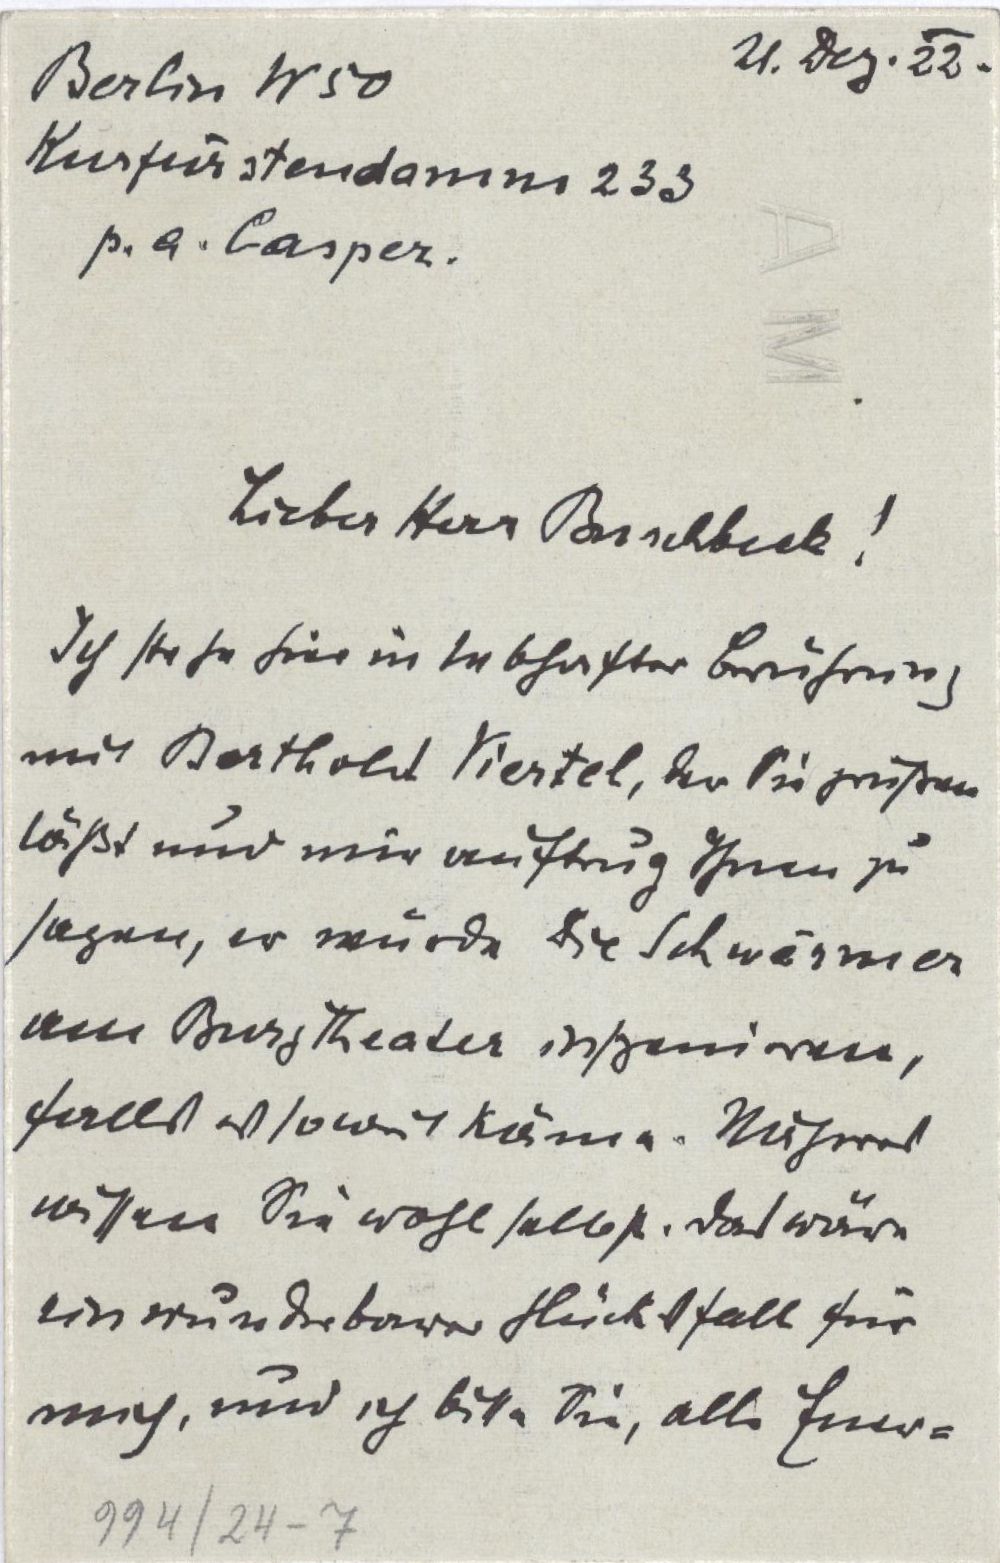 21. Dez. 22.
Berlin W 50
Kurfürstendamm 233
p. a. Casper.
AM
Lieber Herr Buschbeck!
Ich stehe hier in lebhafter Berührung
mit Berthold Viertel, der Sie grüßen
läßt und mir auftrug Ihnen zu
sagen, er würde Die Schwärmer
am Burgtheater inszenieren,
falls es soweit käme. Näheres
wissen Sie wohl selbst. Das wäre
ein wunderbarer Glücksfall für
mich, und ich bitte Sie, alle Ener=
994/24-7